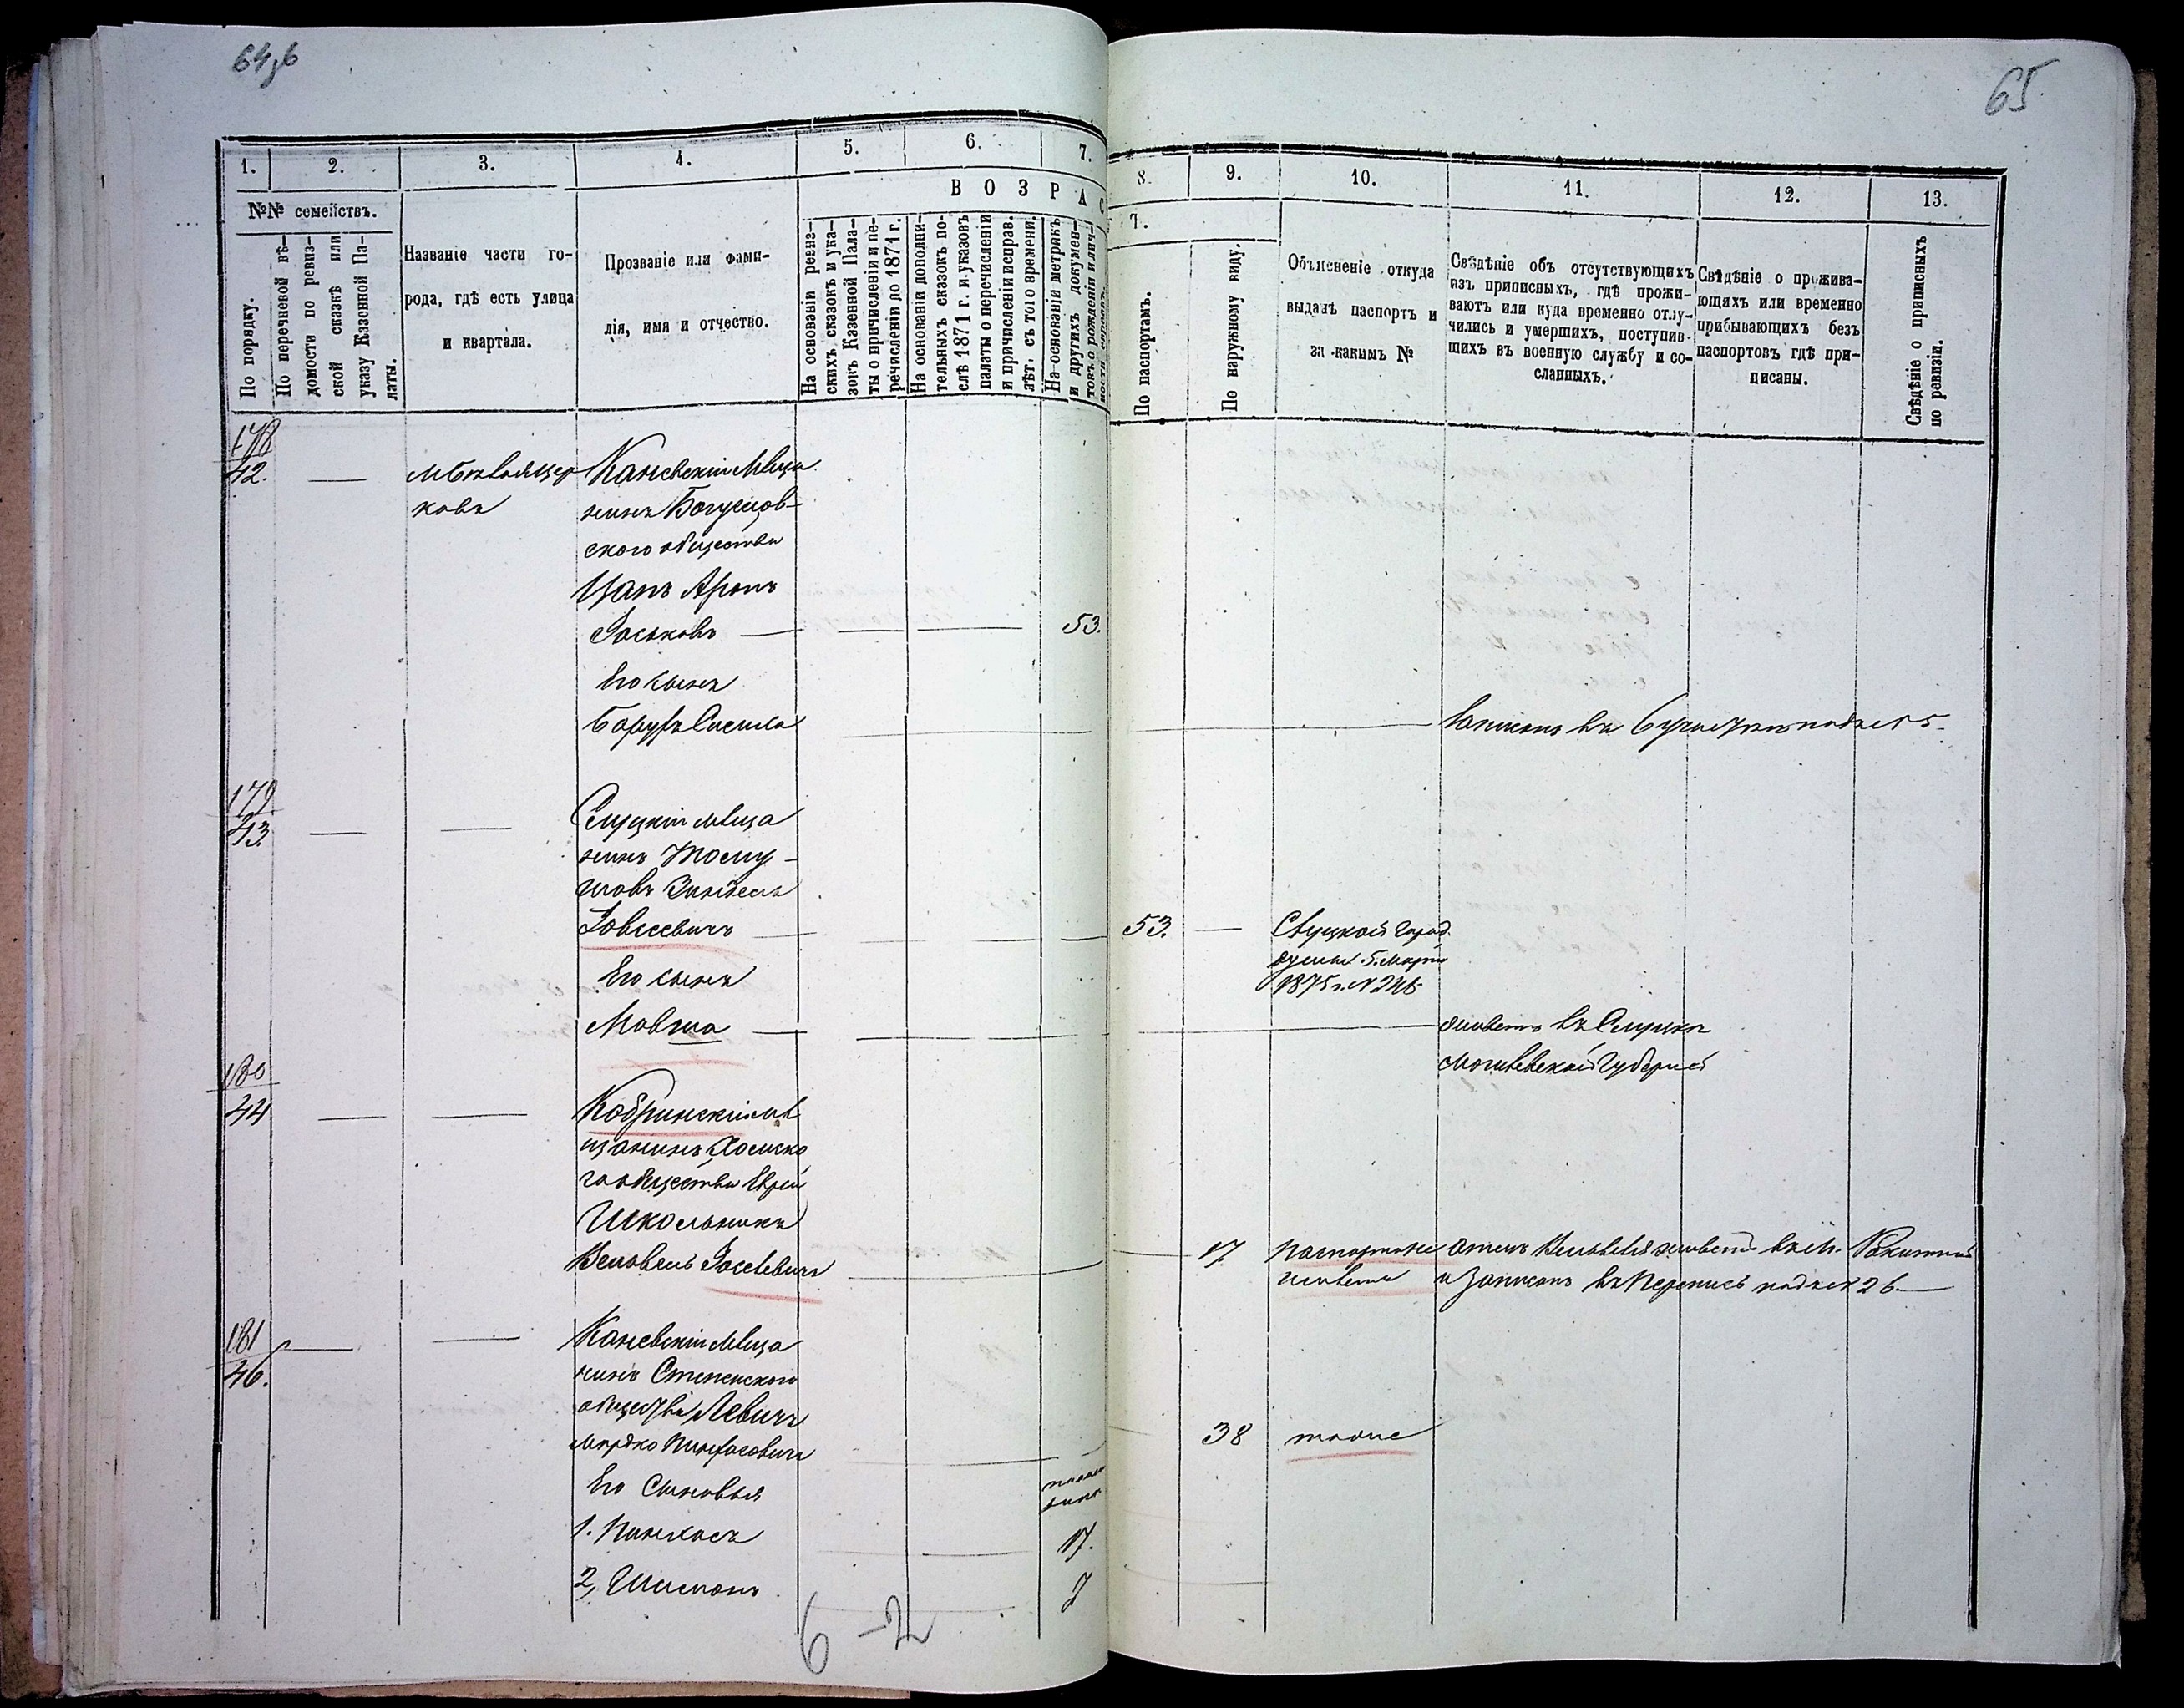 64об
65
1.
2.
3.
4.
5.
6.
7.
8.
9.
10.
11.
12.
13.
№№ семействъ.
По порядку.
По перечневой вѣ-
домости по ревиз-
ской сказкѣ или
указу Казенной Па-
латы.
Названіе части го-
рода, гдѣ есть улица
и квартала.
Прозваніе или фами-
лія, имя и отчество.
ВОЗРАС
На основаніи ревиз-
скихъ сказокъ и ука-
зовъ Казенной Пала-
ты о причисленіи и пе-
речисленіи до 1871 г.
На основаніи дополни-
тельныхъ сказокъ по-
слѣ 1871 г. и указовъ
палаты о перечисленіи
и причисленіи исправ.
лѣт. съ того времени.
На основаніи метрикъ
и другихъ докумен-
товъ о рожденіи и лич-
Т.
По паспортамъ.
По наружному виду.
Объясненіе откуда
выданъ паспортъ и
за какимъ №
Свѣдѣніе объ отсутствующихъ
изъ приписныхъ, гдѣ прожи-
ваютъ или куда временно отлу-
чились и умершихъ, поступив-
шихъ въ военную службу и со-
сланныхъ.
Свѣдѣніе о прожива-
ющихъ или временно
прибывающихъ безъ
паспортовъ гдѣ при-
писаны.
Свѣдѣніе о приписныхъ
по ревизіи.
178
42.
м Бѣлая Цер
ковь
Каневскій Мѣща
нинъ Богуслав-
ского общества
Цапъ Аронъ
Іоськовъ
53.
Его сынъ
Борухъ
въ 6 участкѣ подъ № 5
179
43.
Слуцкій мѣща
нинъ
Зиндель
Іовсеевичъ
53.
Слуцкой Город.
думы 5. Марта
1875 г. №
Его сынъ
Мовша
живетъ въ Слуцкѣ
Могилевской Губерніи
180
44
Кобринскій мѣ
щанинъ Хомско
го общества Еврей
Школьникъ
Вельвель Іоселевичъ
17
Отецъ Вельвеля живетъ въ м. Рокитной
и записанъ въ Переписѣ подъ № 26
181
46.
Каневскій Мѣща
нинъ Степенского
общества Левичъ
Мордко Пинхасовичъ
38
тоже
Его Сыновья
1. Пинхасъ
17.
2, Шимонъ
7
6 - 2